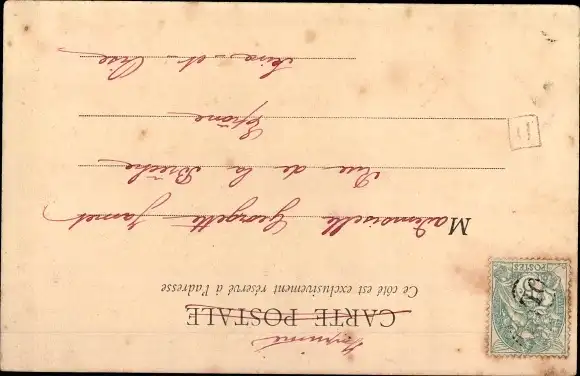 Imprimé
CARTE POSTALE
Ce côté est exclusivement réservé à l'adresse
Mademoiselle Georgette Jamet
Rue de la Brèche
Seine et Oise
POSTES